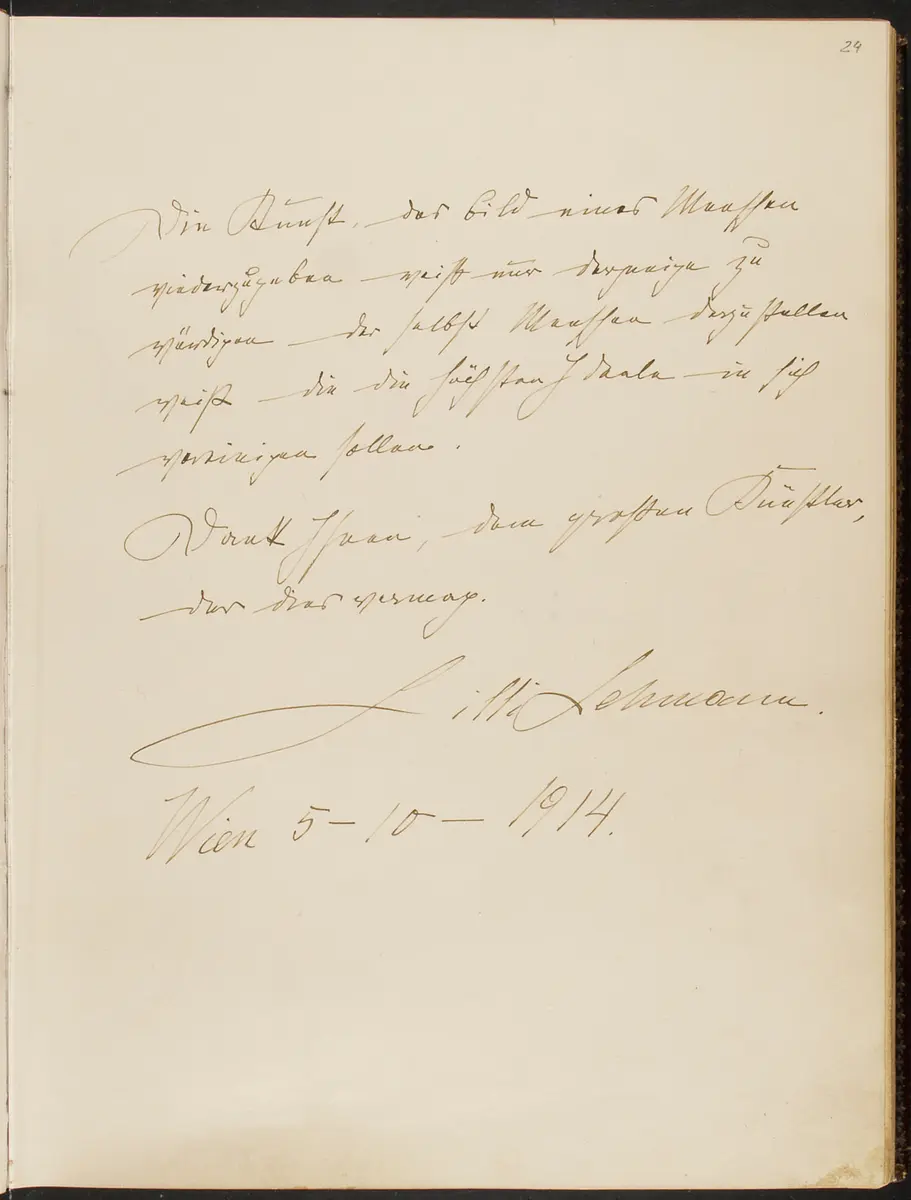 24
Die Kunst, das Bild eines Menschen
wiederzugeben weiß nur derjenige zu
würdigen der selbst Menschen darzustellen
weiß die die höchsten Ideale in sich
vereinigen sollen.
Dank Ihnen, dem großen Künstler,
der dies vermag.
Lilli Lehmann.
Wien 5-10-1914.